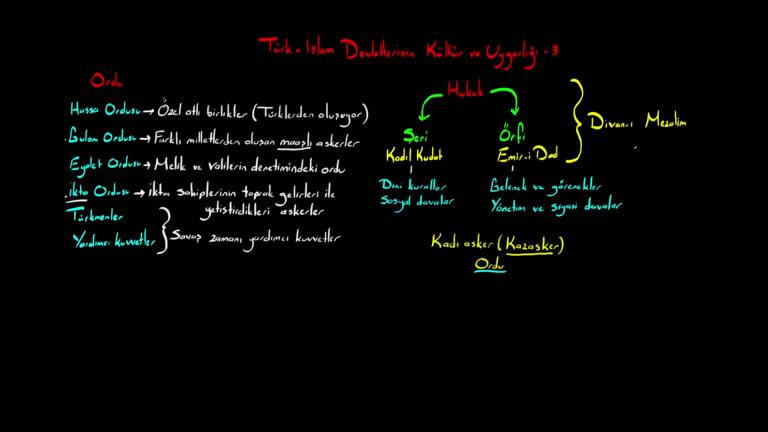 Türk - İslam Devletlerinin Kültür ve Uygarlığı - 3
Ordu
Hassa Ordusu → Özel atlı birlikler (Türklerden oluşuyor)
Gulam Ordusu → Farklı milletlerden oluşan maaşlı askerler
Eyalet Ordusu → Melik ve valilerin denetimindeki ordu
İkta Ordusu → ikta sahiplerinin toprak gelirleri ile
yetiştirdikleri askerler
Türkmenler
Yardımcı kuvvetler
Savaş zamanı yardımcı kuvvetler
Hukuk
Şeri
Kadıl Kudat
Dini kurallar
Sosyal davalar
Örfi
Emir-i Dad
Gelenek ve görenekler
Yönetim ve siyasi davalar
Divan-ı Mezalim
Kadı asker (Kazasker)
Ordu